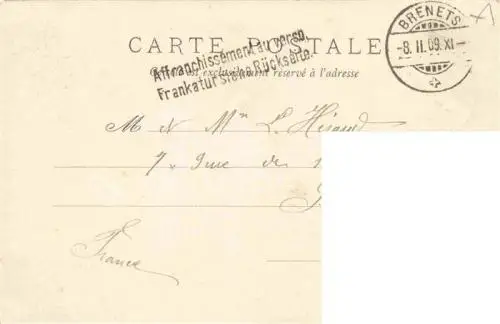 BRENETS
-8. II. 09. XI-
CARTE POSTALE
Affranchissement au verso.
Frankatur siehe Rückseite.
Ce côté est exclusivement réservé à l'adresse
M et Mme L. Héraud
7, Rue des
France